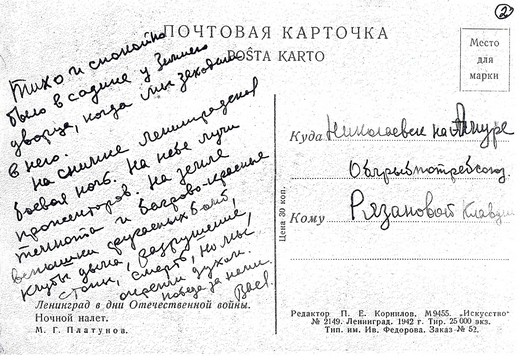 2
ПОЧТОВАЯ КАРТОЧКА
POŜTA KARTO
Место
для
марки
Тихо и спокойно
было в садике у Зимнего
дворца, когда мы заходили
в него.
На снимке Ленинградская
боевая ночь. На небе лучи
прожекторов. На земле
темнота и багрово-красные
вспышки бомб,
клубы дыма, разрушение,
стоны, смерть, но мы
окрепли духом.
Победа за нами.
Ленинград в дни Отечественной войны.
Ночной налет.
М. Г. Платунов.
Цена 30 коп.
Куда Николаевск на Амуре
Облрыбпотребсоюз
Кому Рязановой Клавдии
Редактор П. Е. Корнилов. М9455. „Искусство"
№ 2149. Ленинград. 1942 г. Тир. 25 000 экз.
Тип. им. Ив. Федорова. Заказ № 52.